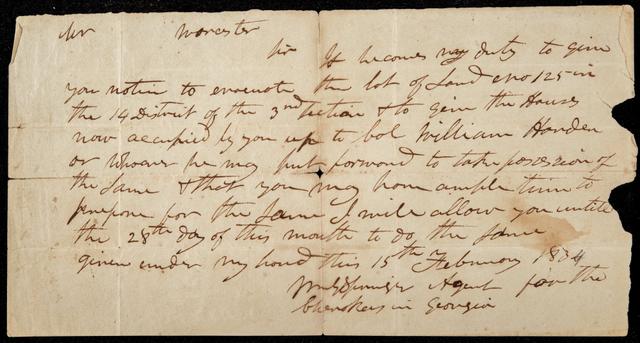 Mr Worcester
Sir It becomes my duty to give
you notice to evacuate the lot of Land No 125 in
the 14 District of the 3rd Section & to give the Houses
now accupied by you up to Col William Harden
or whoever he may put forward to take possession of
the Same & that you may have ample time to
prepare for the Same I will allow you until
the 28th day of this month to do the Same
given under my hand this 15th February 1834
Wm G Springer Agent for the
Cherokees in Georgia